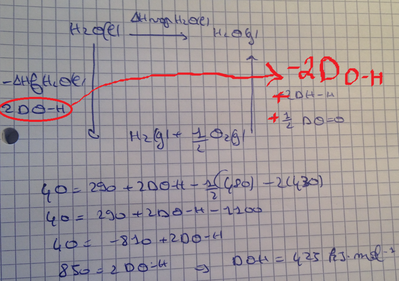 H2O(l) ΔHvap H2O(l) H2O(g)
-ΔHf H2O(l)
2DO-H
-2DO-H
+2DH-H
+1/2 DO=O
H2(g) + 1/2 O2(g)
40 = 290 + 2DO-H - 1/2(480) - 2(430)
40 = 290 + 2DO-H - 1100
40 = -810 + 2DO-H
850 = 2DO-H ⇒ DOH = 425 kJ.mol-1